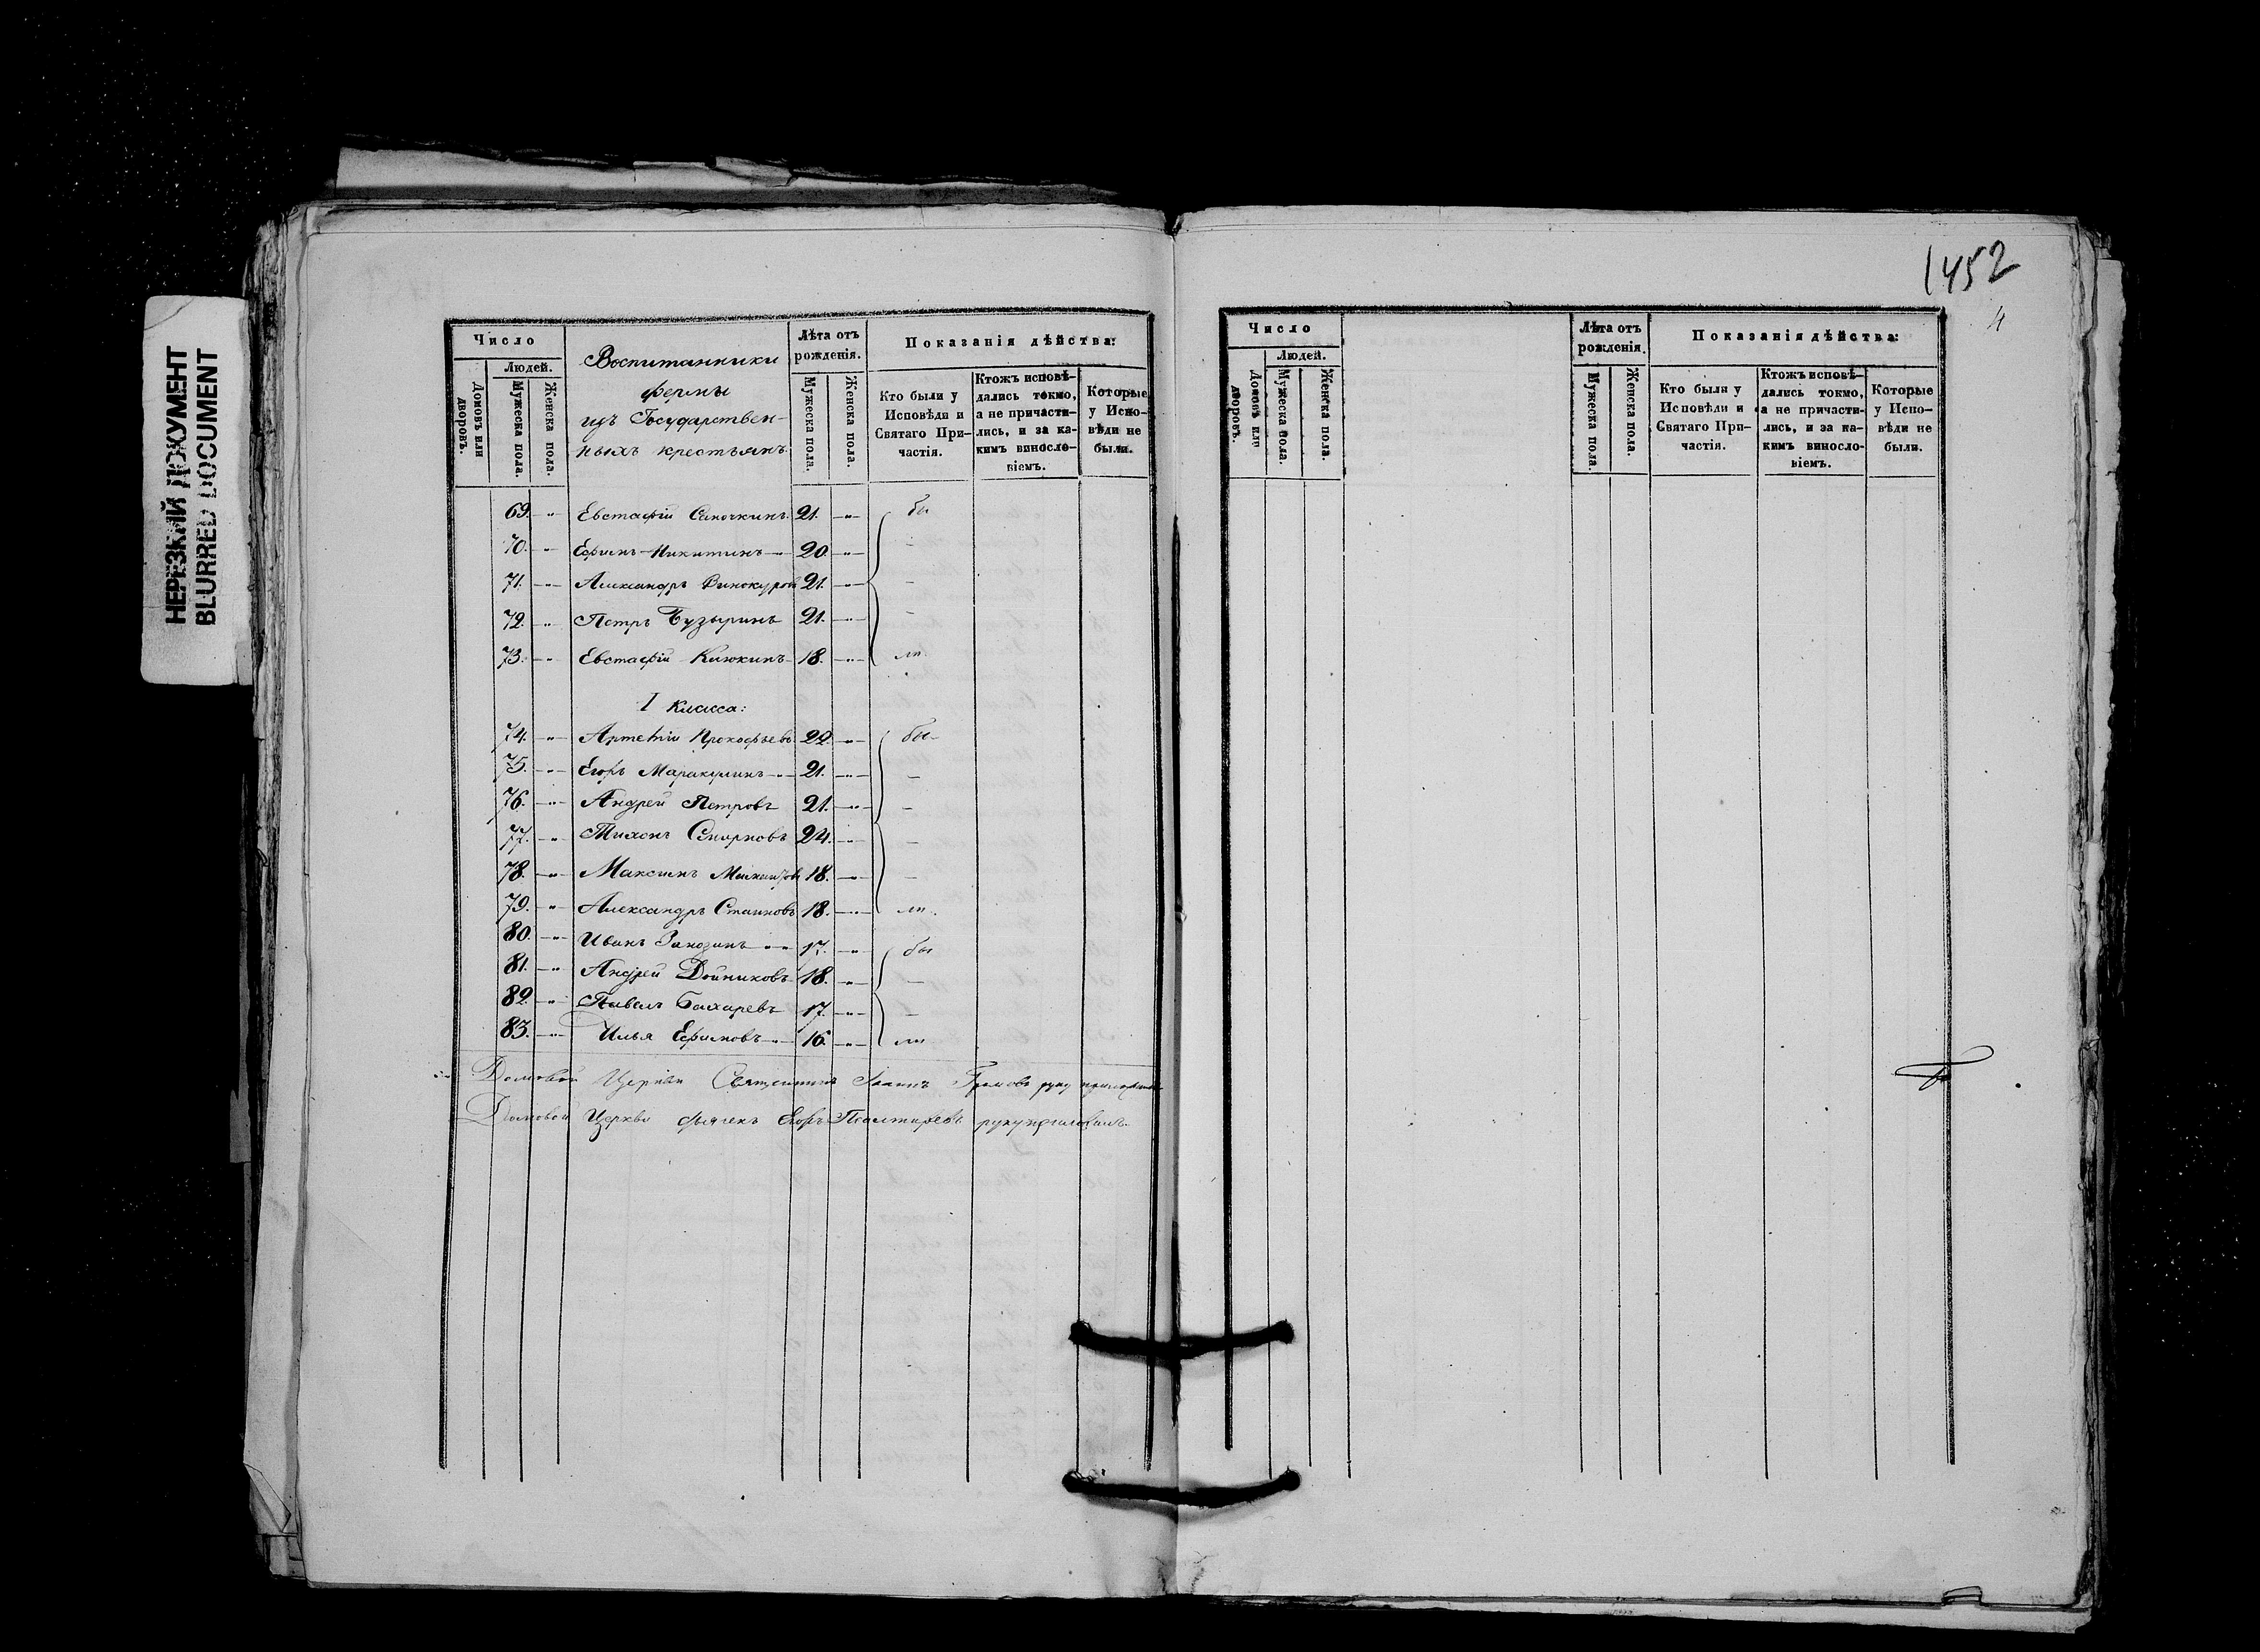 НЕРЕЗКИЙ ДОКУМЕНТ
BLURRED DOCUMENT
1452
4
Число
Людей.
Домовъ или дворовъ.
Мужеска пола.
Женска пола.
Воспитанники
фермы
изъ Государствен-
ныхъ крестьянъ
Лѣта отъ
рожденія.
Мужеска пола.
Женска пола.
Показанія дѣйства:
Кто были у
Исповѣди и
Святаго При-
частія.
Ктожъ исповѣ-
дались токмо,
а не причасти-
лись, и за ка-
кимъ винослo-
віемъ.
Которые
у Испо-
вѣди не
были.
69. Евстафій 21. бы
70. Ефимъ Никитинъ 20. -
71. Александръ Винокуровъ 21. -
72. Петръ Бузыринъ 21. -
73. Евстафій Клюкинъ 18. ли
I класса:
74. Артемій Прокофьевъ 22. бы-
75. Егоръ Маракулинъ 21. -
76. Андрей Петровъ 21. -
77. Тихонъ Смирновъ 24. -
78. Максимъ 18. -
79. Александръ 18. ли.
80. Иванъ Занозинъ 17. бы
81. Андрей Дойниковъ 18. -
82. Павелъ Бахаревъ 17. -
83. Илья Ефимовъ 16. ли
Домовой Церкви Священникъ Іоаннъ руку приложилъ
Домовой Церкви дьячекъ Егоръ Псалтиревъ руку приложилъ
Число
Людей.
Домовъ или дворовъ.
Мужеска пола.
Женска пола.
Лѣта отъ
рожденія.
Мужеска пола.
Женска пола.
Показанія дѣйства:
Кто были у
Исповѣди и
Святаго При-
частія.
Ктожъ исповѣ-
дались токмо,
а не причасти-
лись, и за ка-
кимъ винослo-
віемъ.
Которые
у Испо-
вѣди не
были.